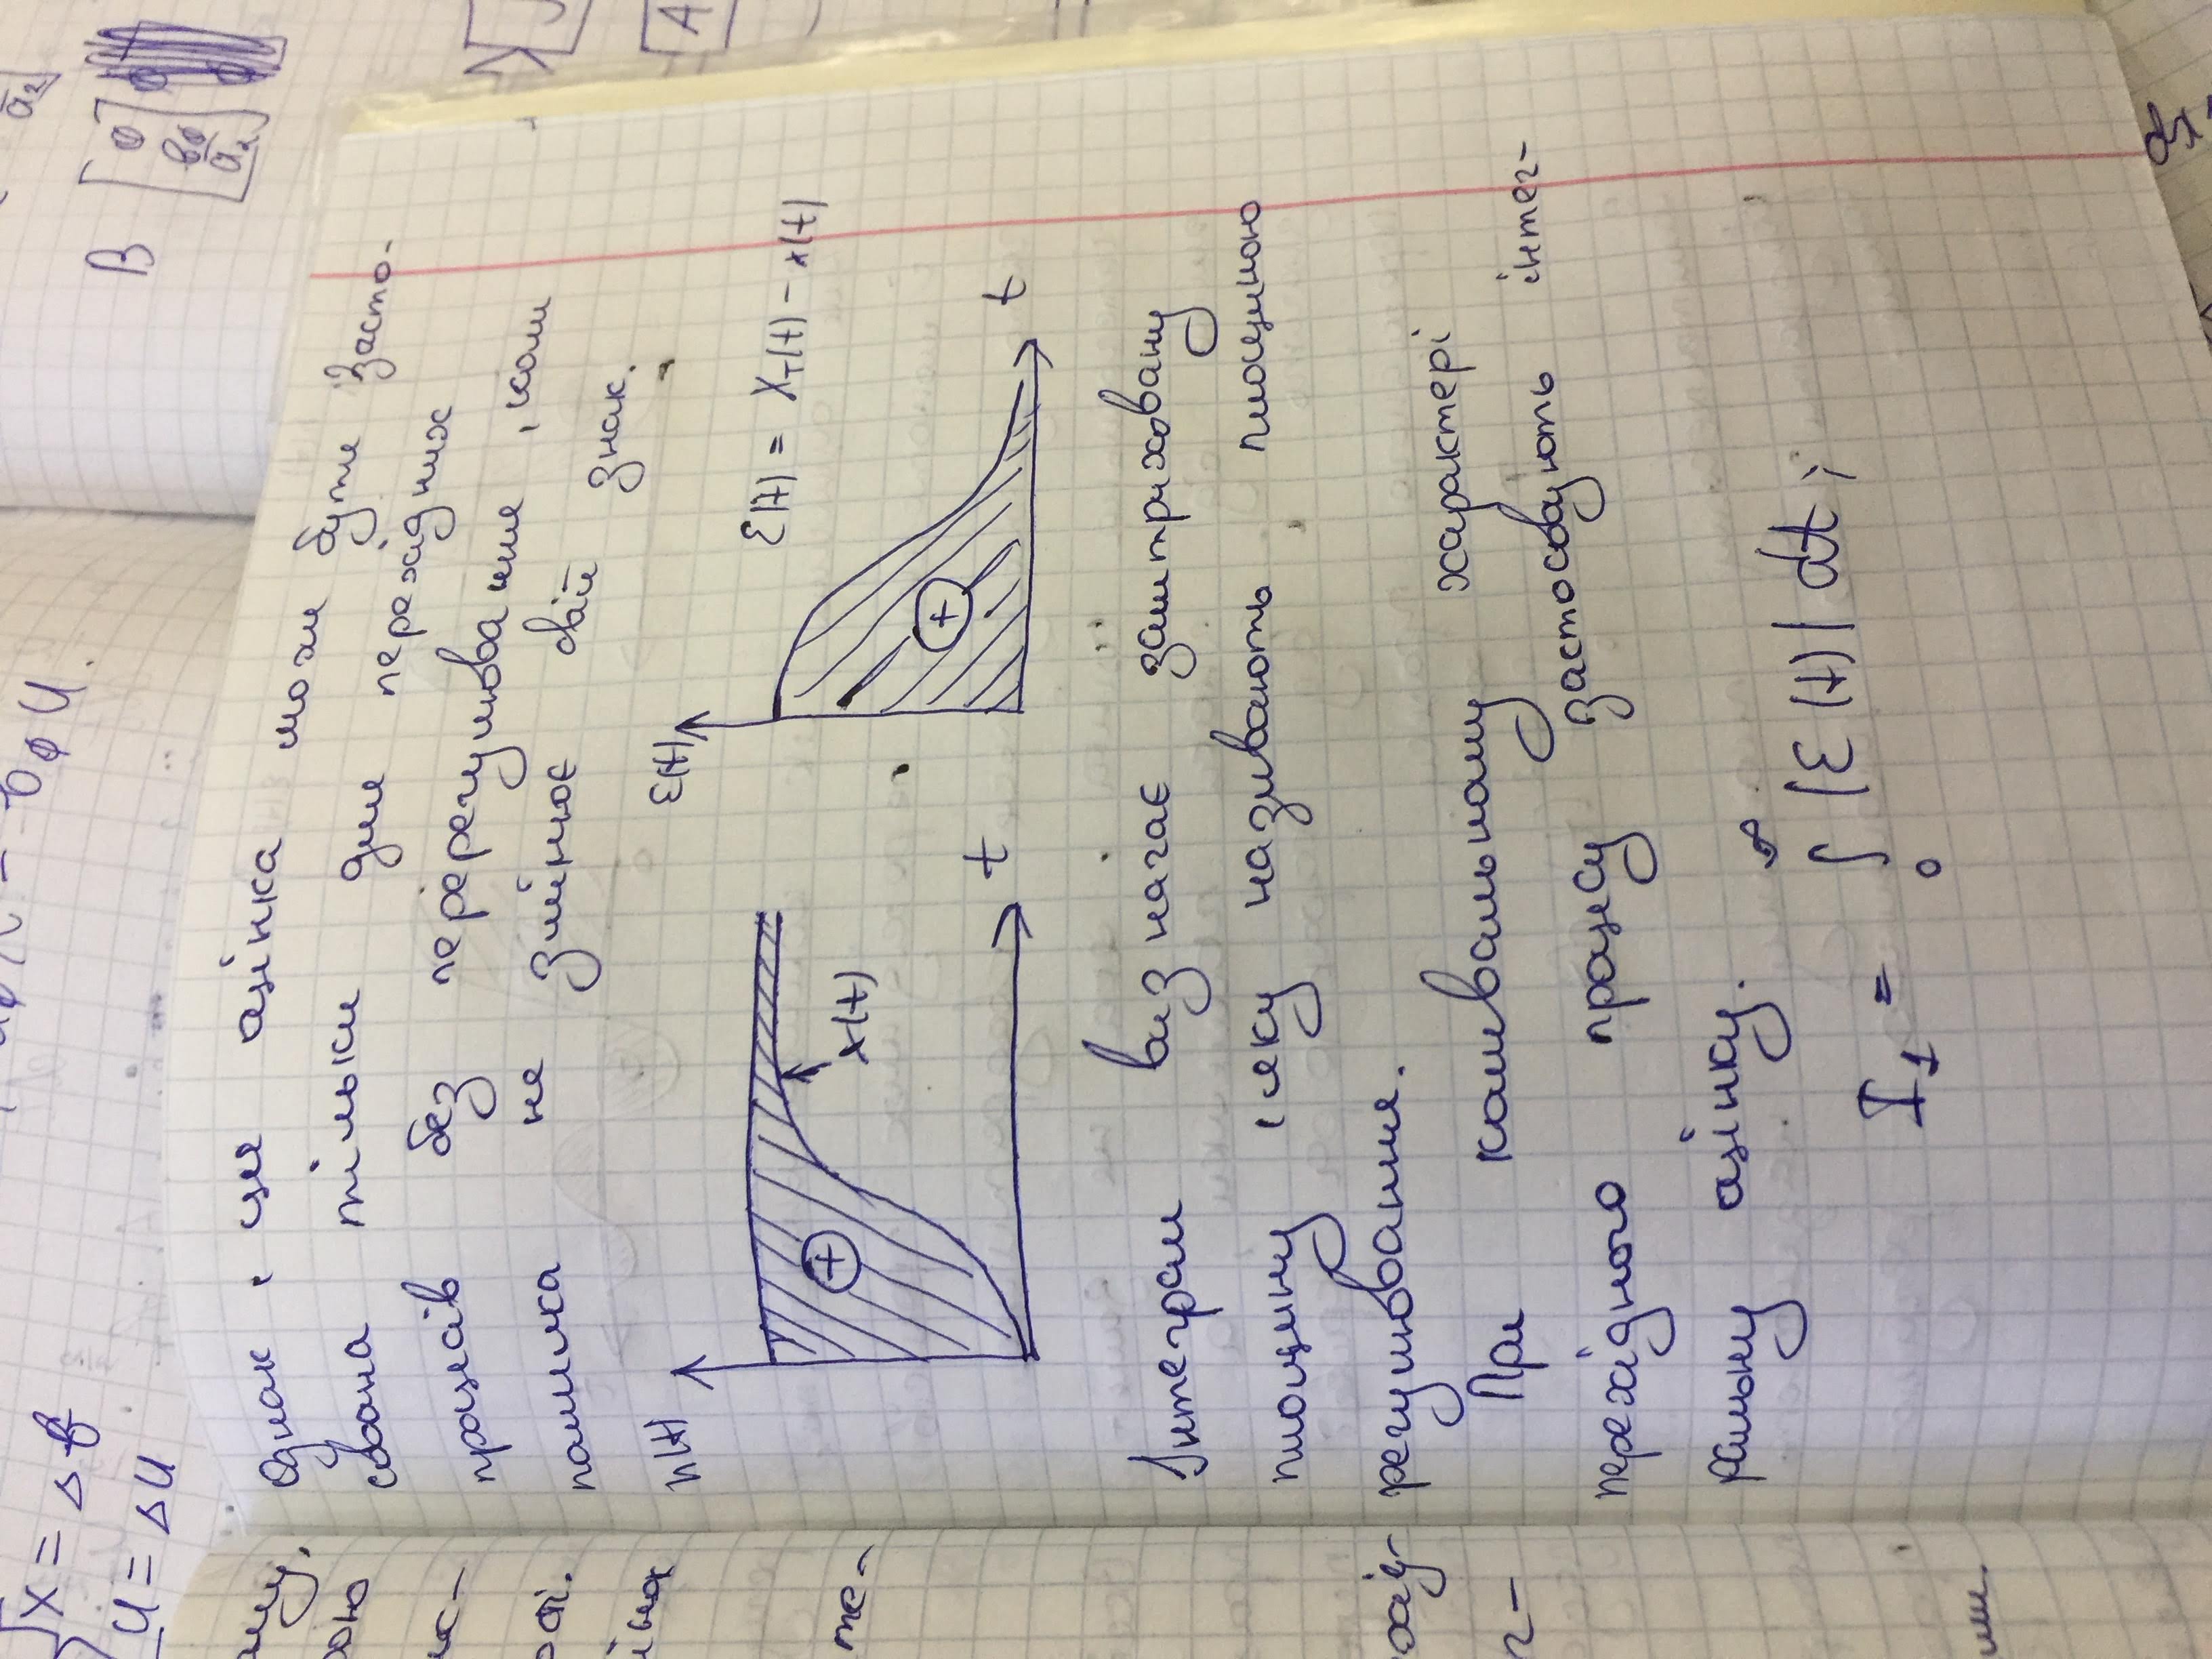 x = Δ
u = Δu
b₀u.
a₂
B [0
b₀
a₂]
Однак, ця оцінка може бути засто-
сована тільки для перехідних
процесів без перерегулювання, коли
помилка не змінює свій знак.
h(t)
ε(t)
ε(t) = Xт(t) - x(t)
+
x(t)
+
t
t
Інтеграл визначає заштриховану
площину, яку називають площиною
регулювання.
При коливальному характері
перехідного процесу застосовують інтег-
ральну оцінку.
I₁ = ∫₀^∞ |ε(t)| dt;
ому,
рою
ості.
те-
хід-
г-
A